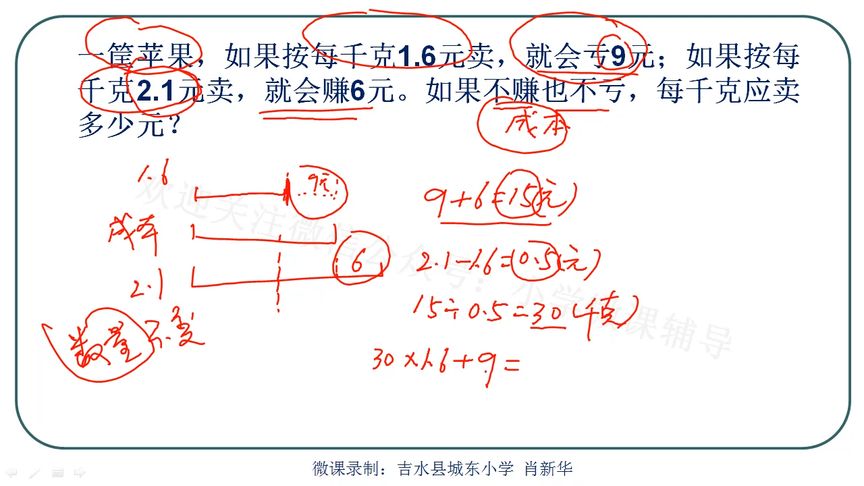 一筐苹果，如果按每千克1.6元卖，就会亏9元；如果按每
千克2.1元卖，就会赚6元。如果不赚也不亏，每千克应卖
多少元？
成本
1.6
9元
9+6=15(元)
成本
6
2.1-1.6=0.5(元)
2.1
15÷0.5=30(千克)
数量不变
30×1.6+9=
微课录制：吉水县城东小学 肖新华